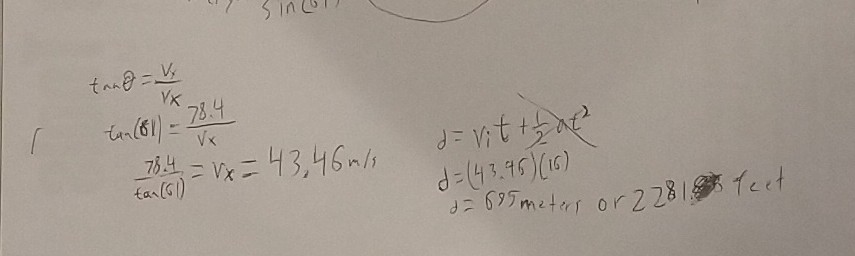 sin(61)
tanθ = Vy/Vx
tan(61) = 78.4/Vx
78.4/tan(61) = Vx = 43,46 m/s
d = Vit + 1/2 at²
d = (43.46)(16)
d = 695 meters or 2281 feet